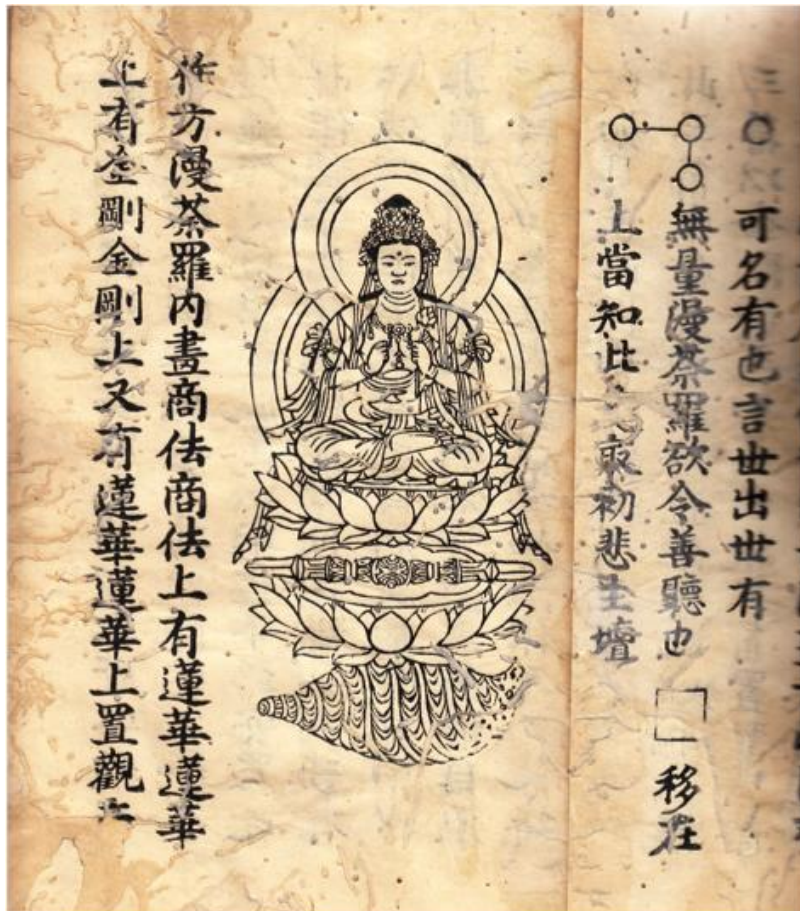 可名有也言世出世有
無量漫荼羅欲令善聽也
移在
上當知比 冣初悲生壇
作方漫荼羅内畫商佉商佉上有蓮華蓮華
上有金剛金剛上又有蓮華蓮華上置觀